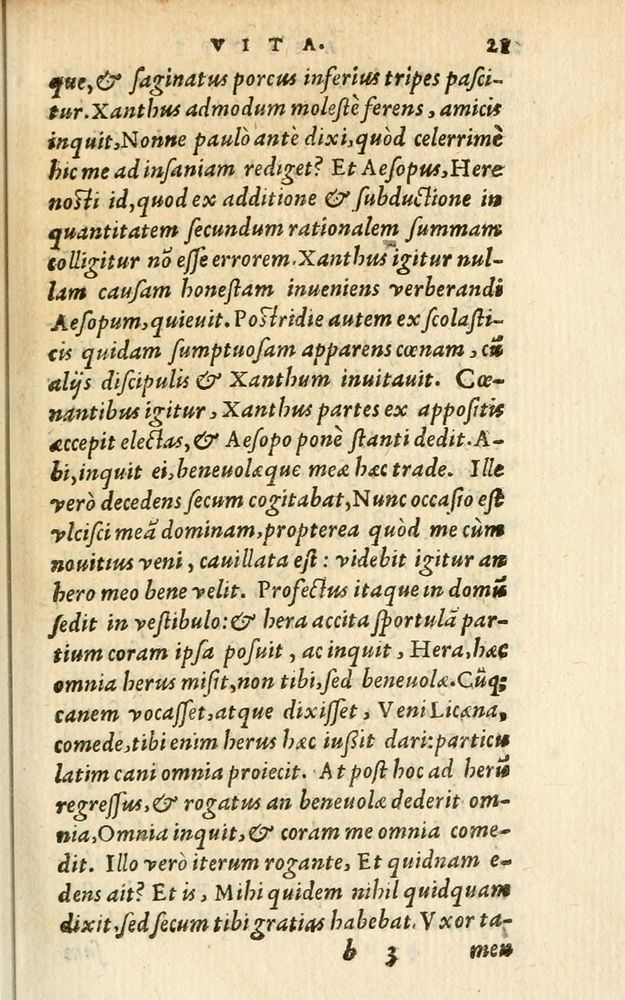 VITA. 21
que, & saginatus porcus inferius tripes pasci-
tur. Xanthus admodum molestè ferens, amicis
inquit, Nonne paulò antè dixi, quòd celerrimè
hic me ad insaniam rediget? Et Aesopus, Here
nosti id, quod ex additione & subductione in
quantitatem secundum rationalem summam
colligitur nō esse errorem. Xanthus igitur nul-
lam causam honestam inueniens verberandi
Aesopum, quieuit. Postridie autem ex scolasti-
cis quidam sumptuosam apparens cœnam, cū
alijs discipulis & Xanthum inuitauit. Cœ-
nantibus igitur, Xanthus partes ex appositis
accepit electas, & Aesopo ponè stanti dedit. A-
bi, inquit ei, beneuolæque meæ hæc trade. Ille
verò decedens secum cogitabat, Nunc occasio est
vlcisci meā dominam, propterea quòd me cùm
nouitius veni, cauillata est: videbit igitur an
hero meo bene velit. Profectus itaque in domū
sedit in vestibulo: & hera accita sportulā par-
tium coram ipsa posuit, ac inquit, Hera, hæc
omnia herus misit, non tibi, sed beneuolæ. Cūq;
canem vocasset, atque dixisset, Veni Licæna,
comede, tibi enim herus hæc iussit dari: particu
latim cani omnia proiecit. At post hoc ad herū
regressus, & rogatus an beneuolæ dederit om-
nia, Omnia inquit, & coram me omnia come-
dit. Illo verò iterum rogante, Et quidnam e-
dens ait? Et is, Mihi quidem nihil quidquam
dixit, sed secum tibi gratias habebat. Vxor ta-
b 3 men